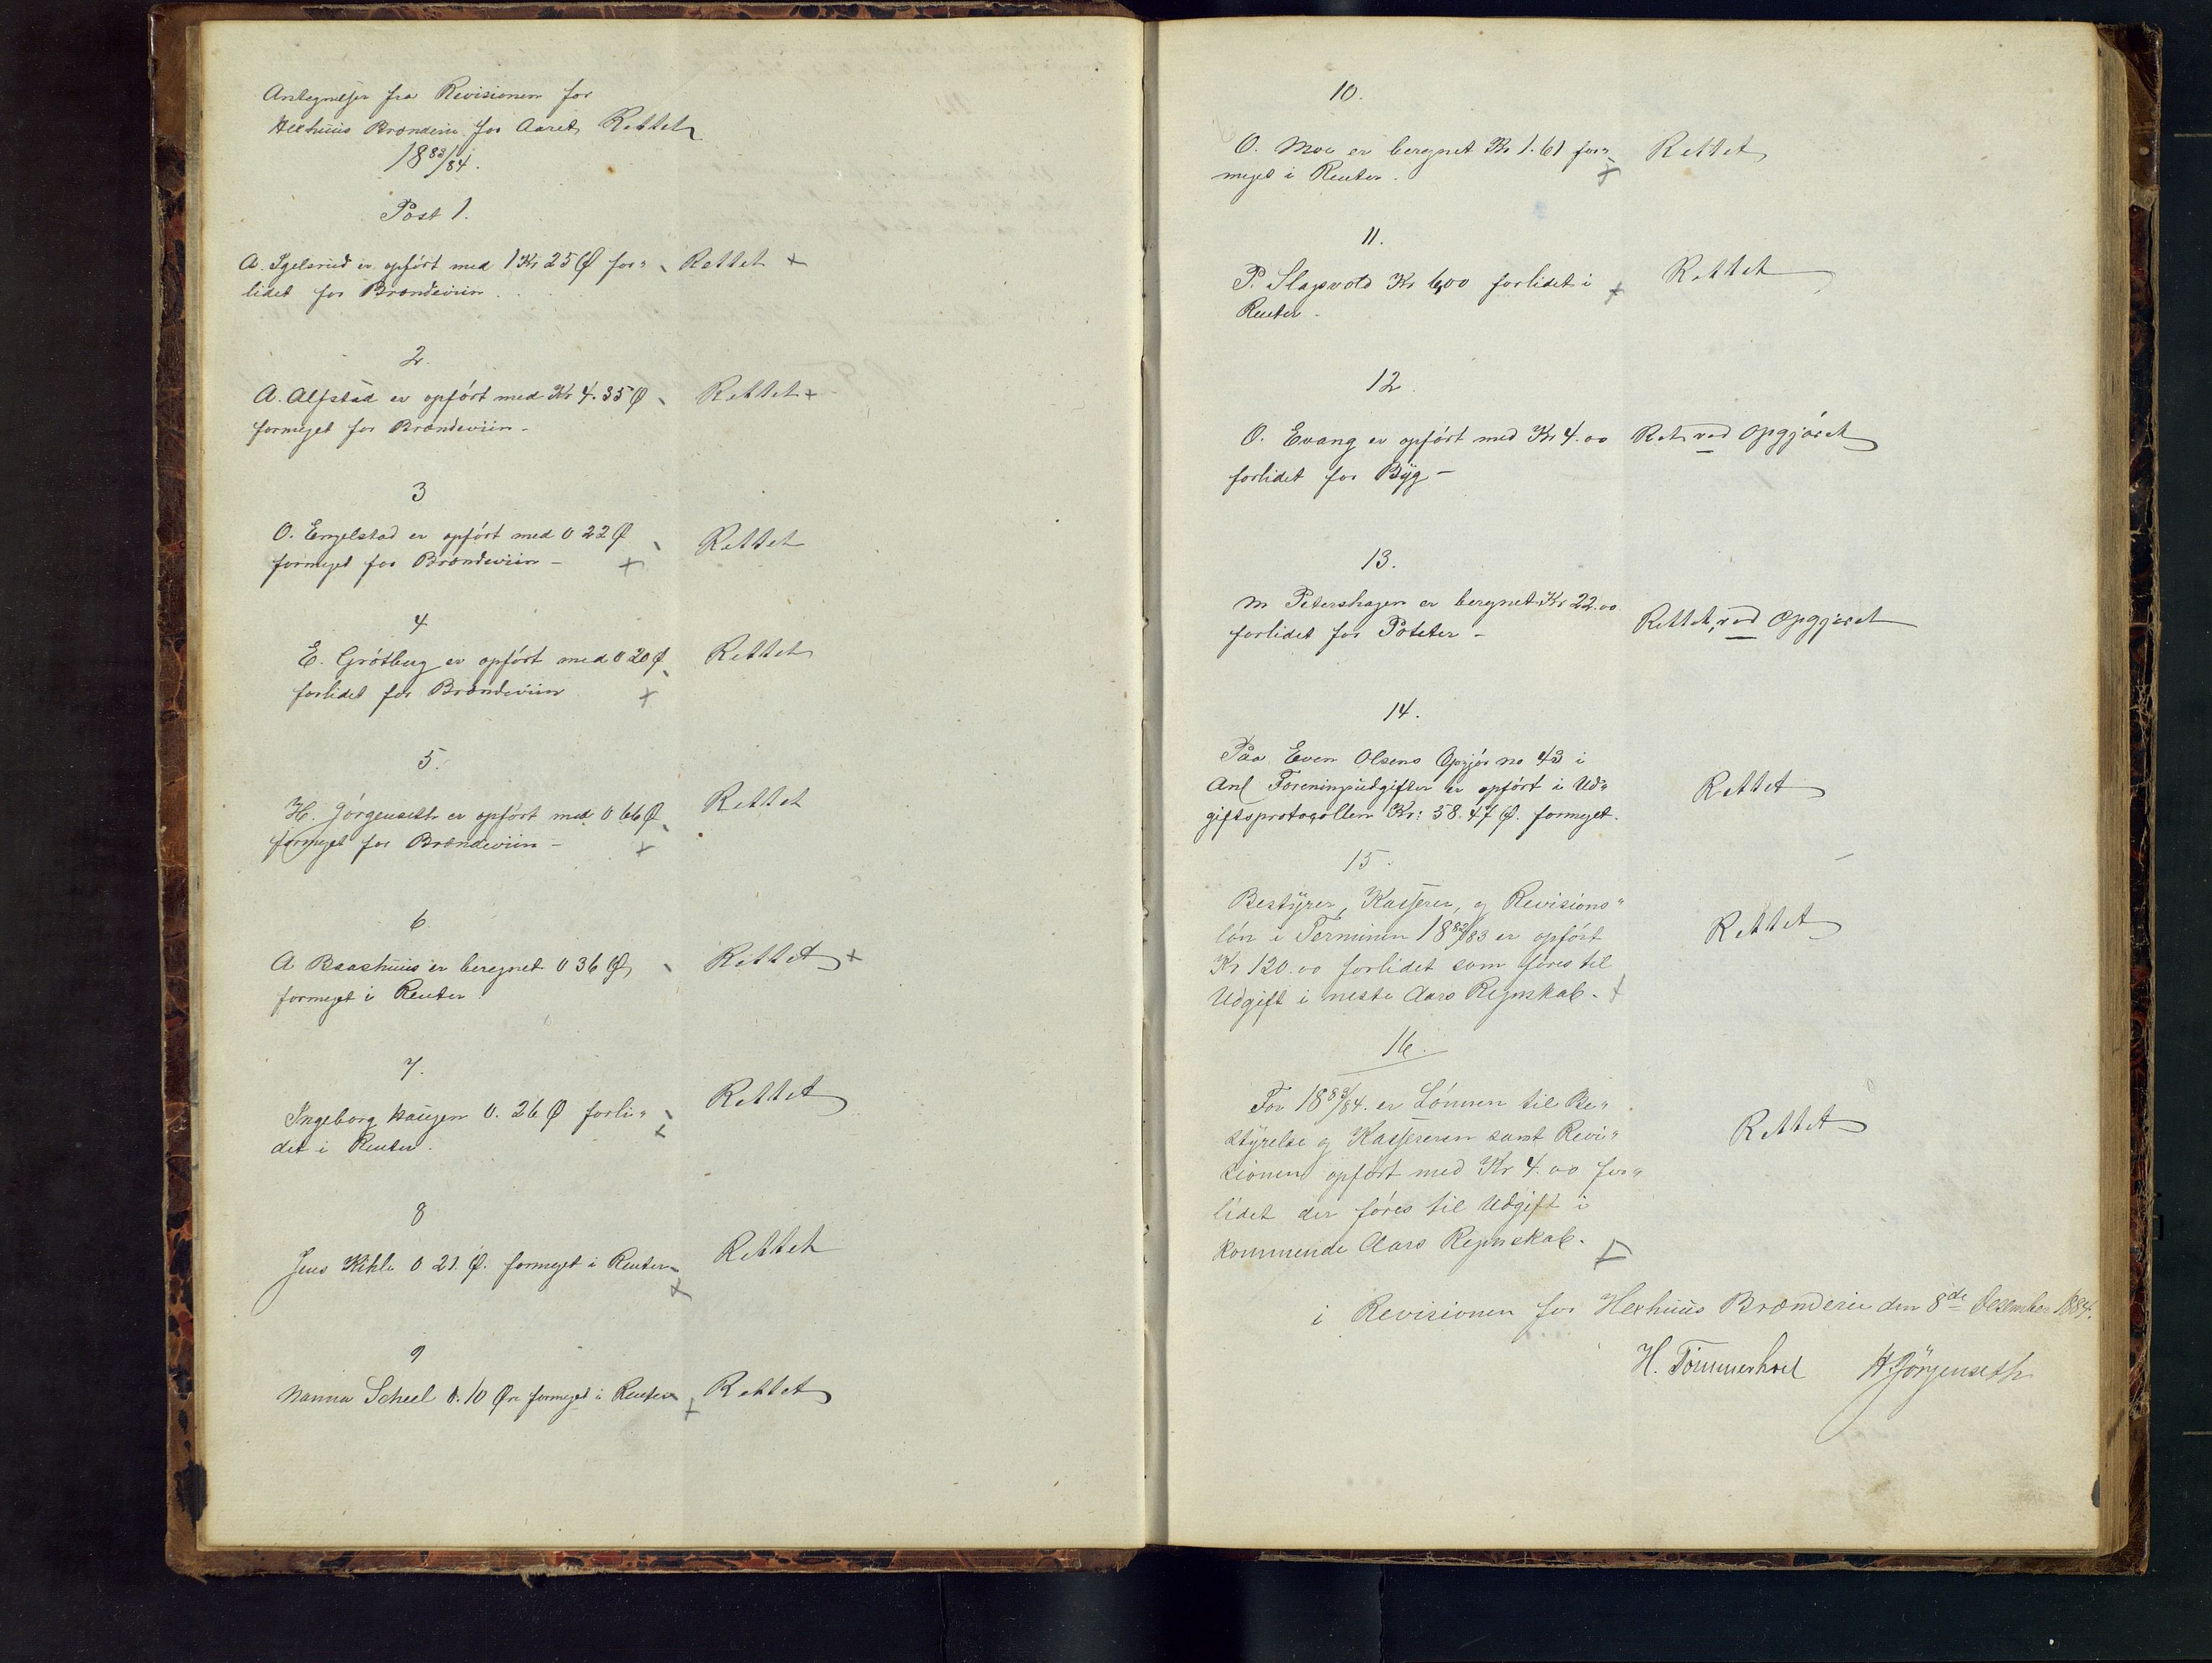 Antegnelser fra Revisionen for
Hexhuus Brænderie for Aaret Rettet
1883/84.
Post 1.
A. Igelsrud er opført med 1 Kr 25 Ø for„ Rettet
lidet for Brændeviin.
2.
A. Alfstad er opført med Kr 4.35 Ø Rettet
formeget for Brændeviin –
3
O. Engelstad er opført med 0 22 Ø Rettet
formeget for Brændeviin –
4
E. Grötberg er opført med 0 20 Ø Rettet
forlidet for Brændeviin
5.
H. Jørgenseth er opført med 0 66 Ø Rettet
formeget for Brændeviin –
6
A Baashuus er beregnet 0 36 Ø Rettet
formeget i Renter.
7.
Ingeborg Haugen 0. 26 Ø forli„ Rettet
det i Renter.
8
Jens Kihle 0 21. Ø. formeget i Renter Rettet
9
Nanna Scheel 0.10 Øre formeget i Renter Rettet
10.
O. Moe er beregnet Kr 1.61 for„ Rettet
meget i Renter.
11.
P. Slagsvold Kr 6,00 forlidet i Rettet
Renter.
12.
O. Evang er opført med Kr 4.00 Ret ved Opgjöret
forlidet for Byg –
13.
M Petershagen er beregnet Kr 22.00
forlidet for Poteter – Rettet ved Opgjøret
14.
Paa Even Olsens Opgjör no 43 i
Anl Foreningsudgifter er opført i Ud„ Rettet
giftsprotocollen Kr: 58.47 Ø. formeget.
15.
Bestyrer, Kasserer, og Revisions„
lön i Terminen 1882/83 er opført Rettet
Kr 120.00 forlidet som føres til
Udgift i neste Aars Regnskab.
16.
For 1883/84. er Lönnen til Be„
styrelse og Kassereren samt Revi„ Rettet
sionen opført med Kr 4.00 for„
lidet der føres til Udgift i
kommende Aars Regnskab.
i Revisionen for Hexhuus Brænderie den 8de Desember 1884.
H. Tömmerhoel H Jörgenseth